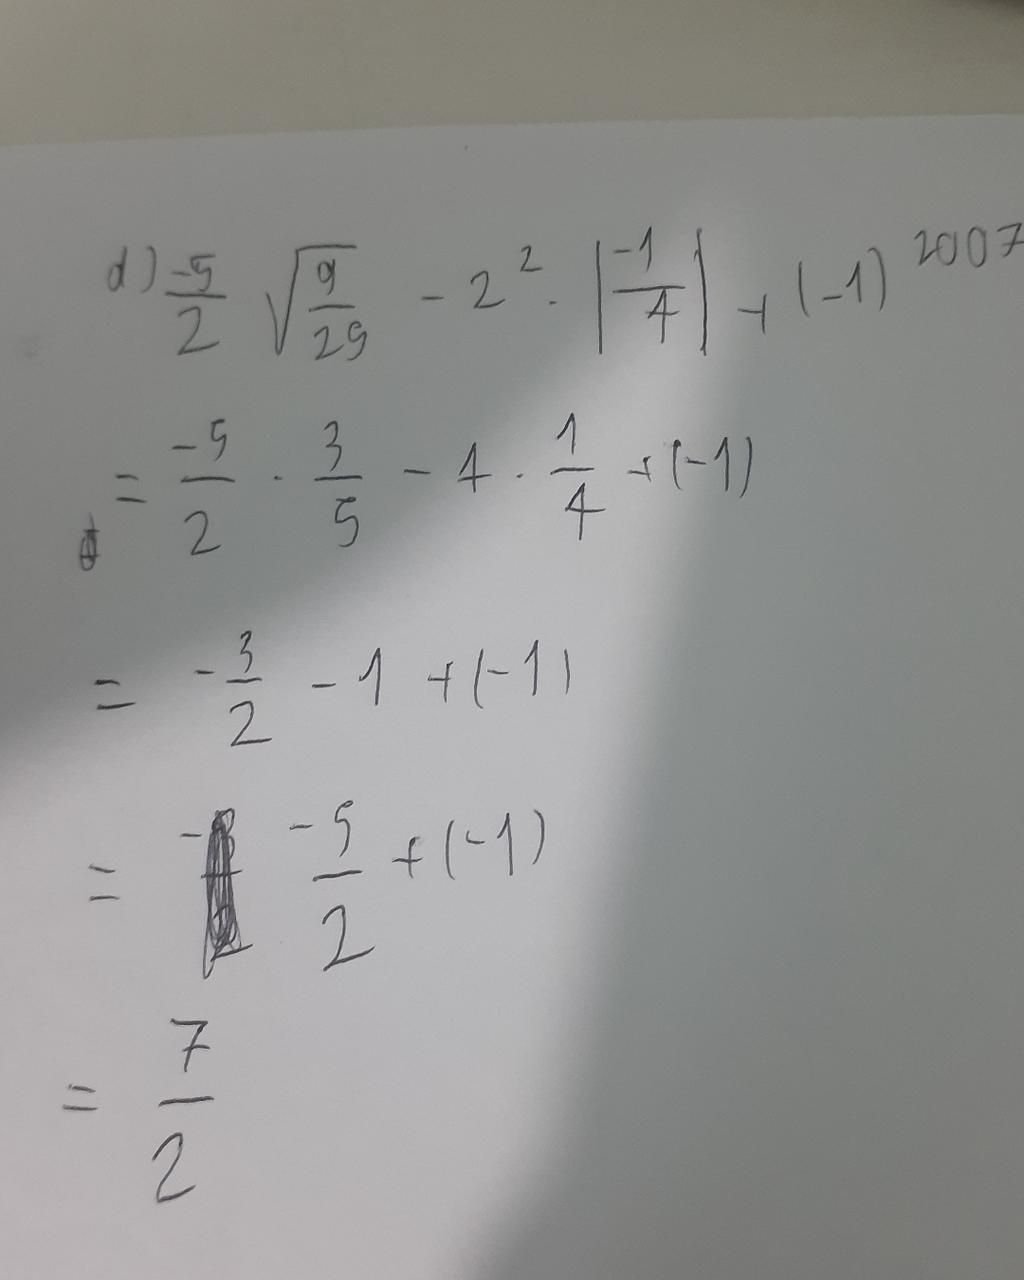 d) -5/2 √(9/25) - 2² · |-1/4| + (-1)²⁰⁰⁷
= -5/2 · 3/5 - 4 · 1/4 + (-1)
= -3/2 - 1 + (-1)
= - -5/2 + (-1)
= 7/2